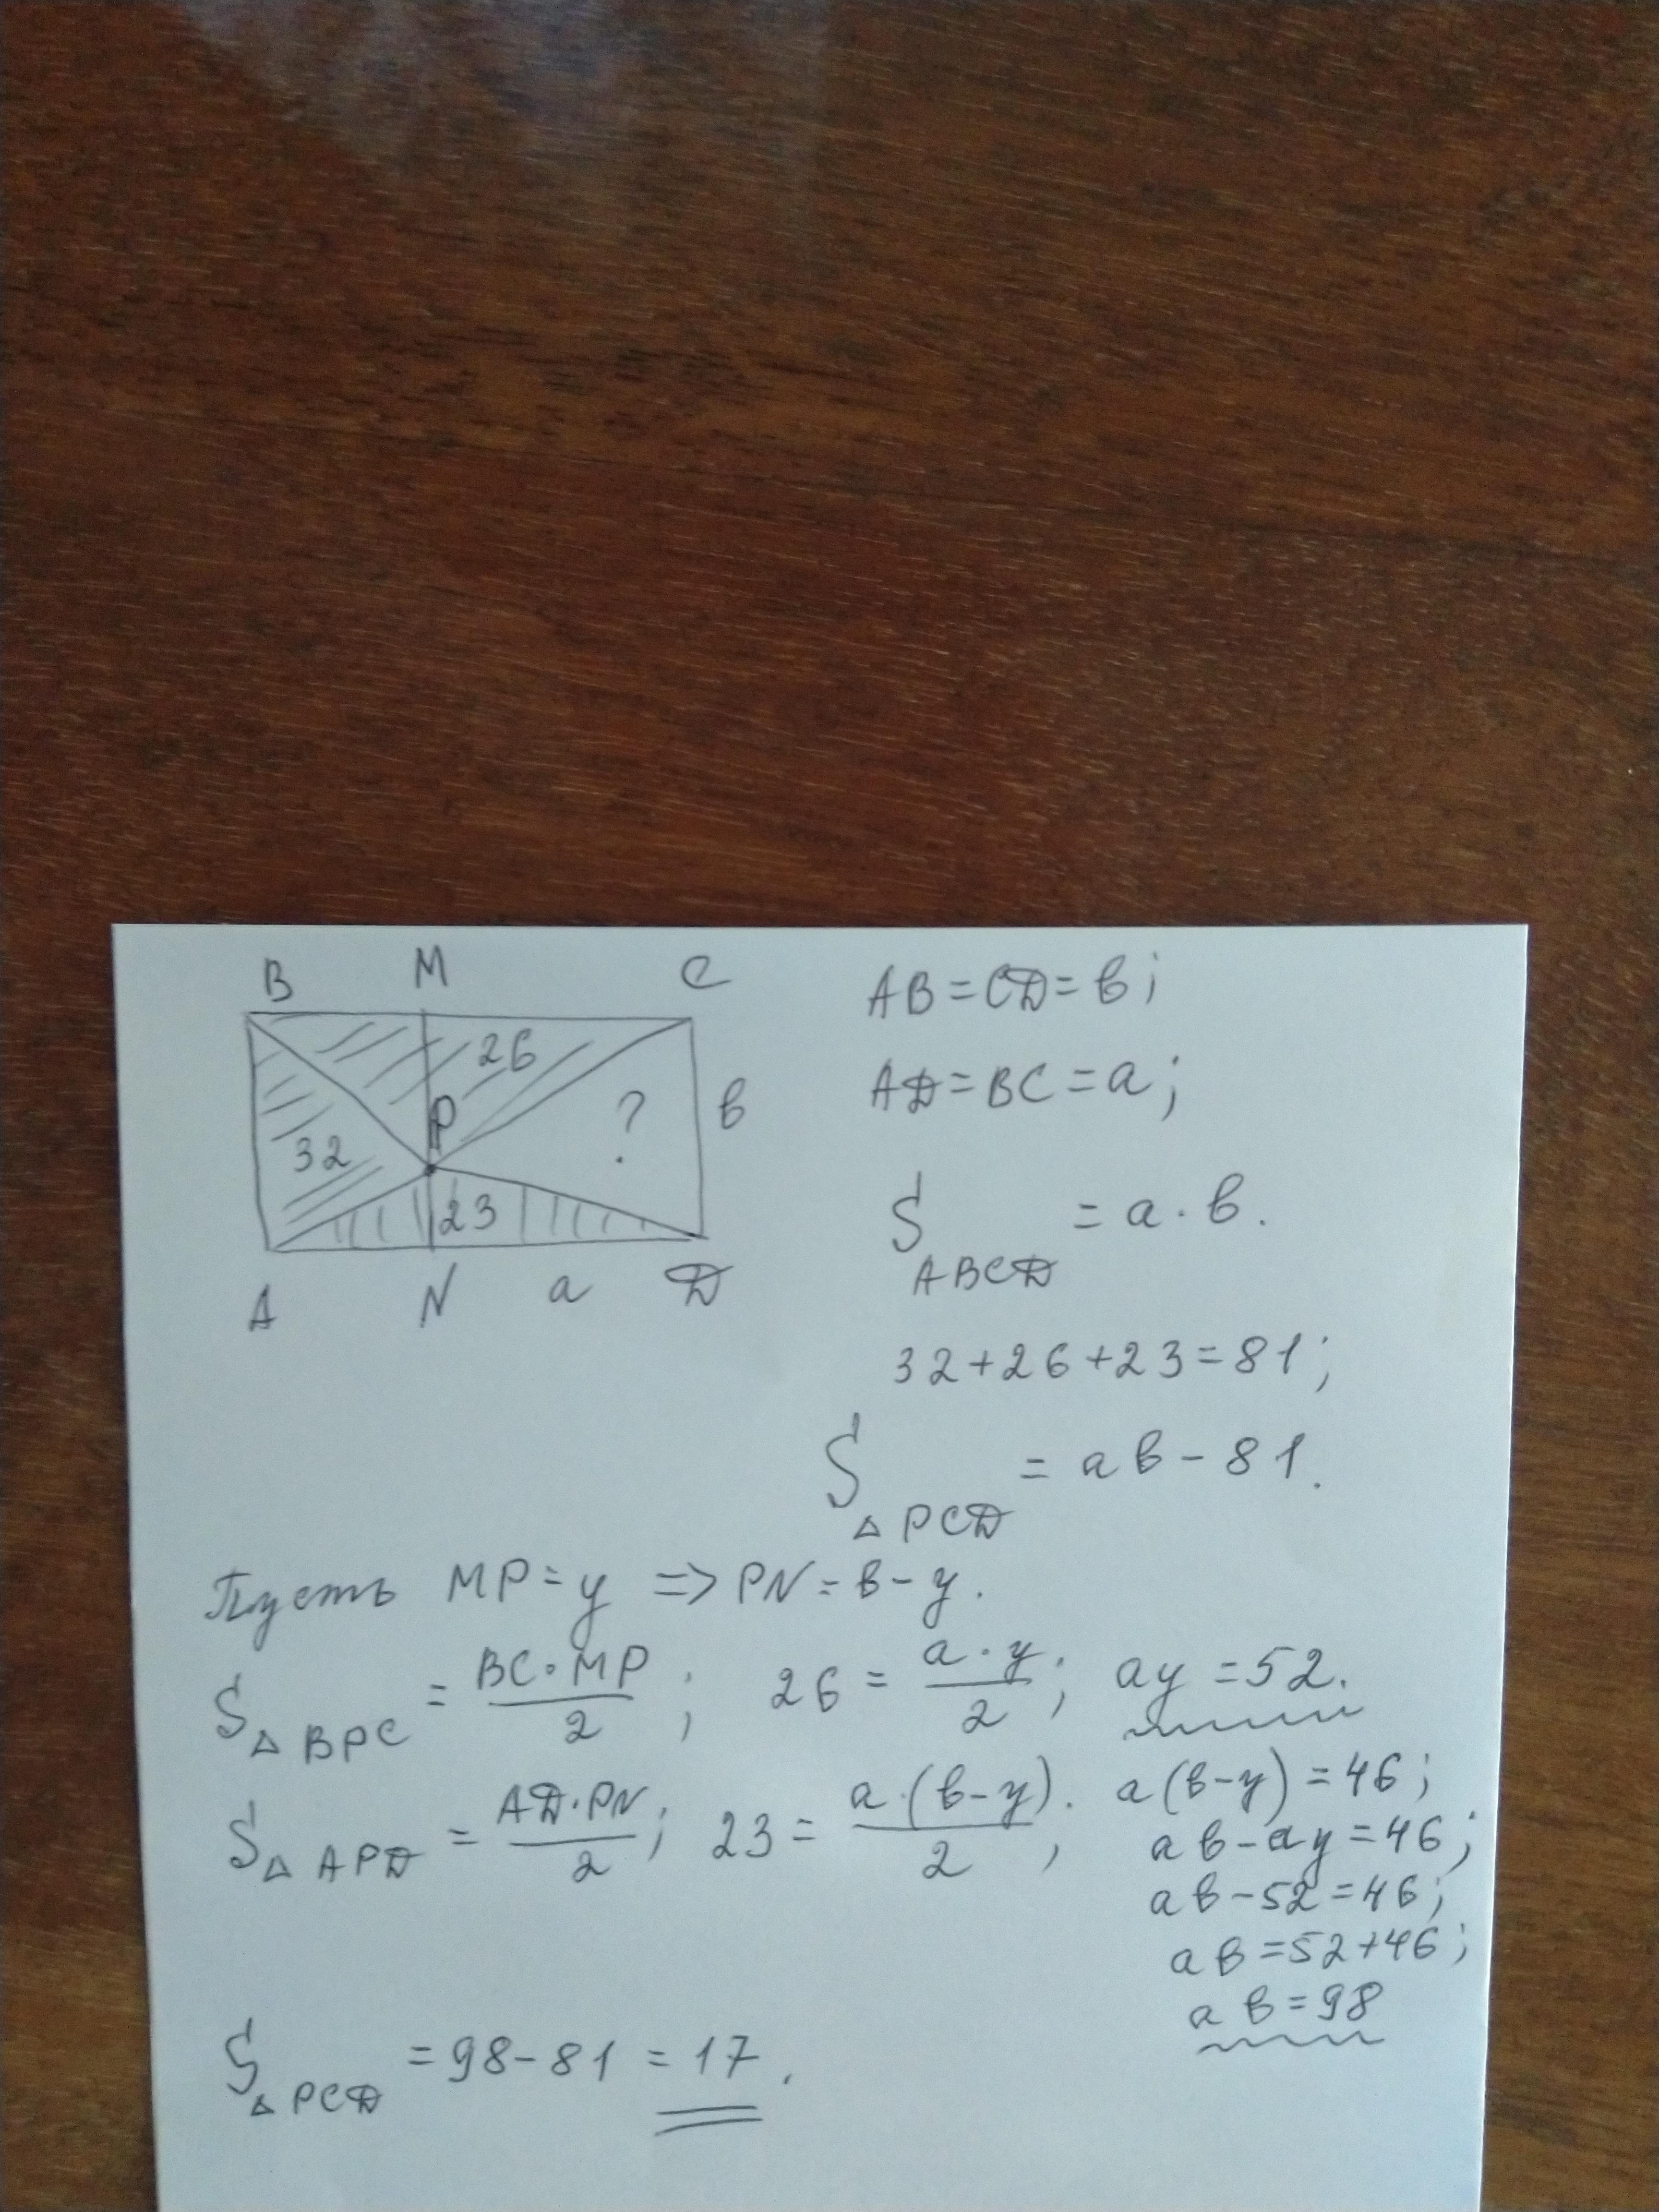 B M C
26
P ? в
32
23
A N a D
AB=CD=в;
AD=BC=a;
S ABCD = a·в.
32+26+23=81;
S △PCD = aв-81.
Пусть MP=y => PN=в-y.
S△BPC = BC·MP/2; 26 = a·y/2; ay=52.
S△APD = AD·PN/2; 23 = a·(в-y)/2; a(в-y)=46;
aв-ay=46;
aв-52=46;
aв=52+46;
aв=98
S△PCD = 98-81 = 17.